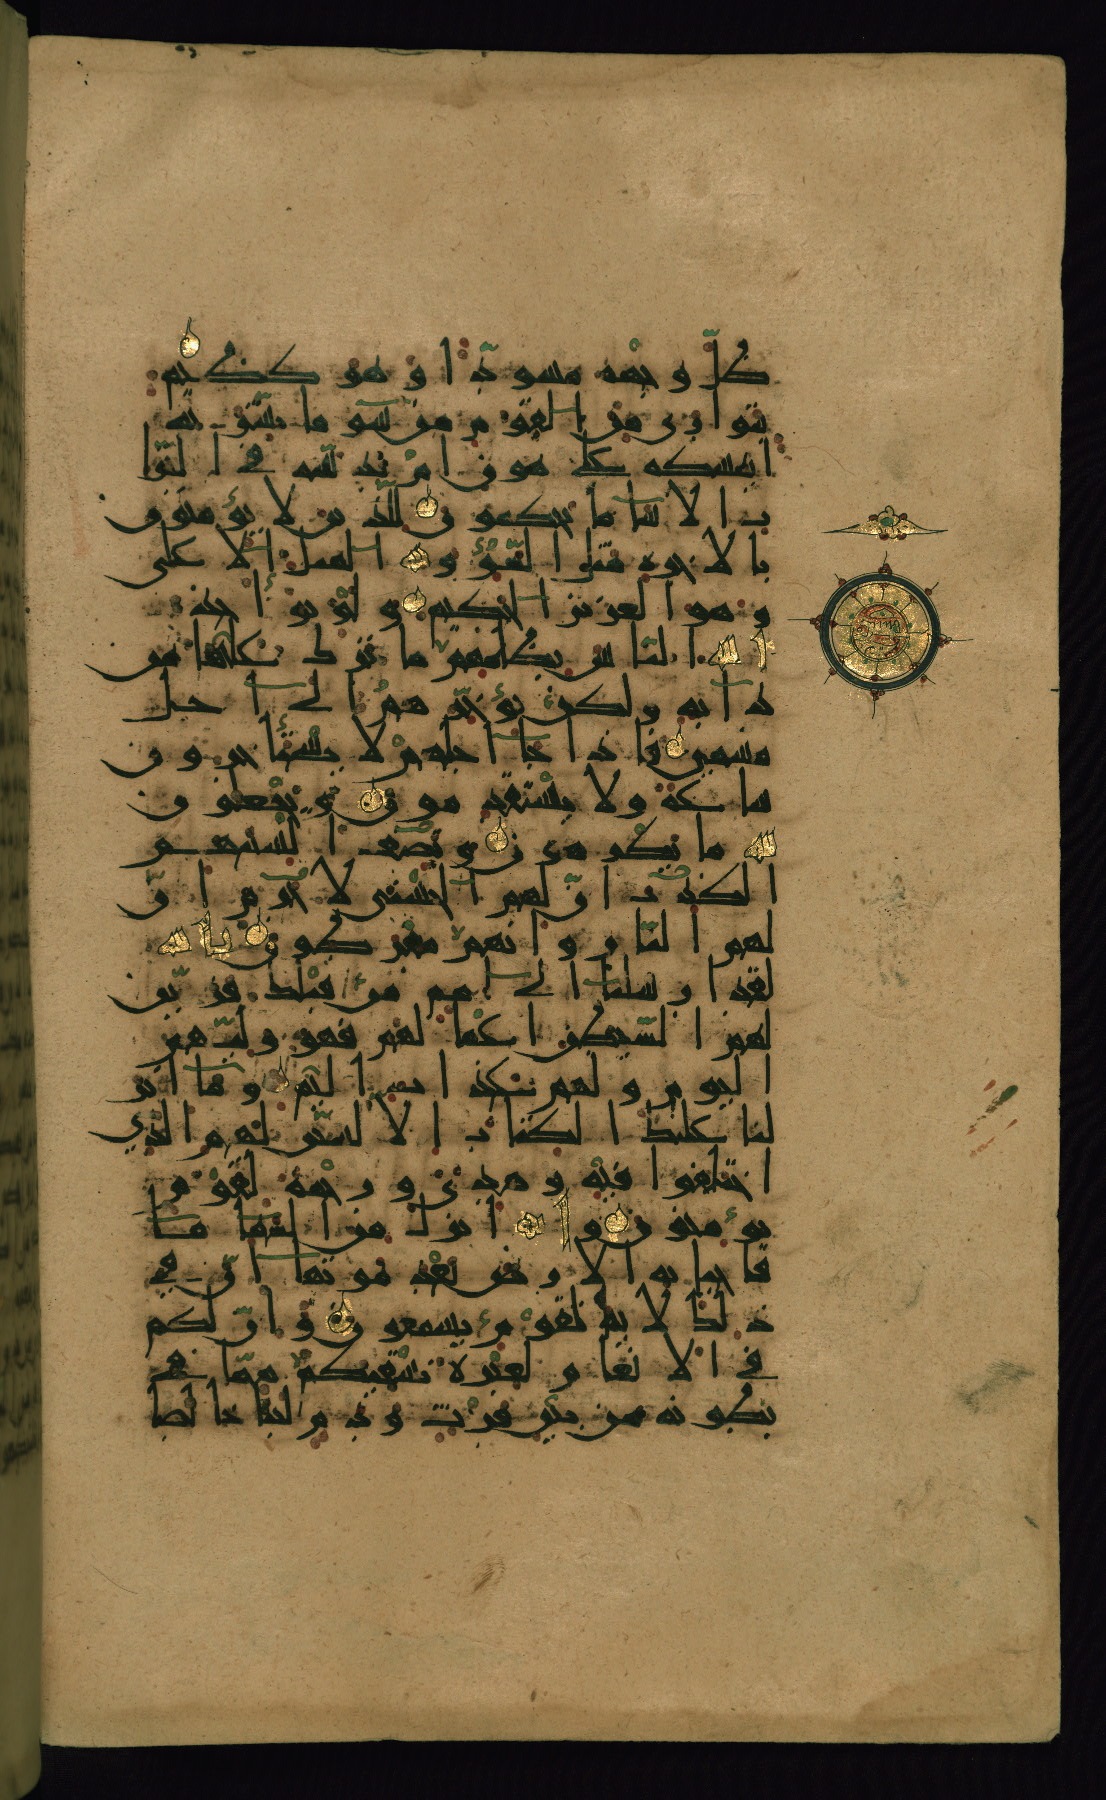 ظلّ وجهه مسودّا وهو كظيم
يتوارى من القوم من سوء ما بشّر به
ايمسكه على هون ام يدسّه في الترا
ب الا ساء ما يحكمون للّذين لا يؤمنون
بالاخرة مثل السّوء ولله المثل الاعلى
وهو العزيز الحكيم ولو يؤاخذ
الله النّاس بظلمهم ما ترك عليها من
دابة ولكن يؤخّرهم الى اجل
مسمى فاذا جاء اجلهم لا يستاخرون
ساعة ولا يستقدمون ويجعلون
لله ما يكرهون وتصف السنتهم
الكذب انّ لهم الحسنى لا جرم انّ
لهم النّار وانهم مفرطون تالله
لقد ارسلنا الى امم من قبلك فزيّن
لهم الشّيطن اعمالهم فهو وليّهم
اليوم ولهم عذاب اليم وما انز
لنا عليك الكتاب الا لتبيّن لهم الذي
اختلفوا فيه وهدى ورحمة لقوم
يؤمنون والله انزل من السّماء ماء
فاحيا به الارض بعد موتها انّ في
ذلك لاية لقوم يسمعون وانّ لكم
في الانعام لعبرة نسقيكم ممّا في
بطونه من بين فرث ودم لبنا خالصا